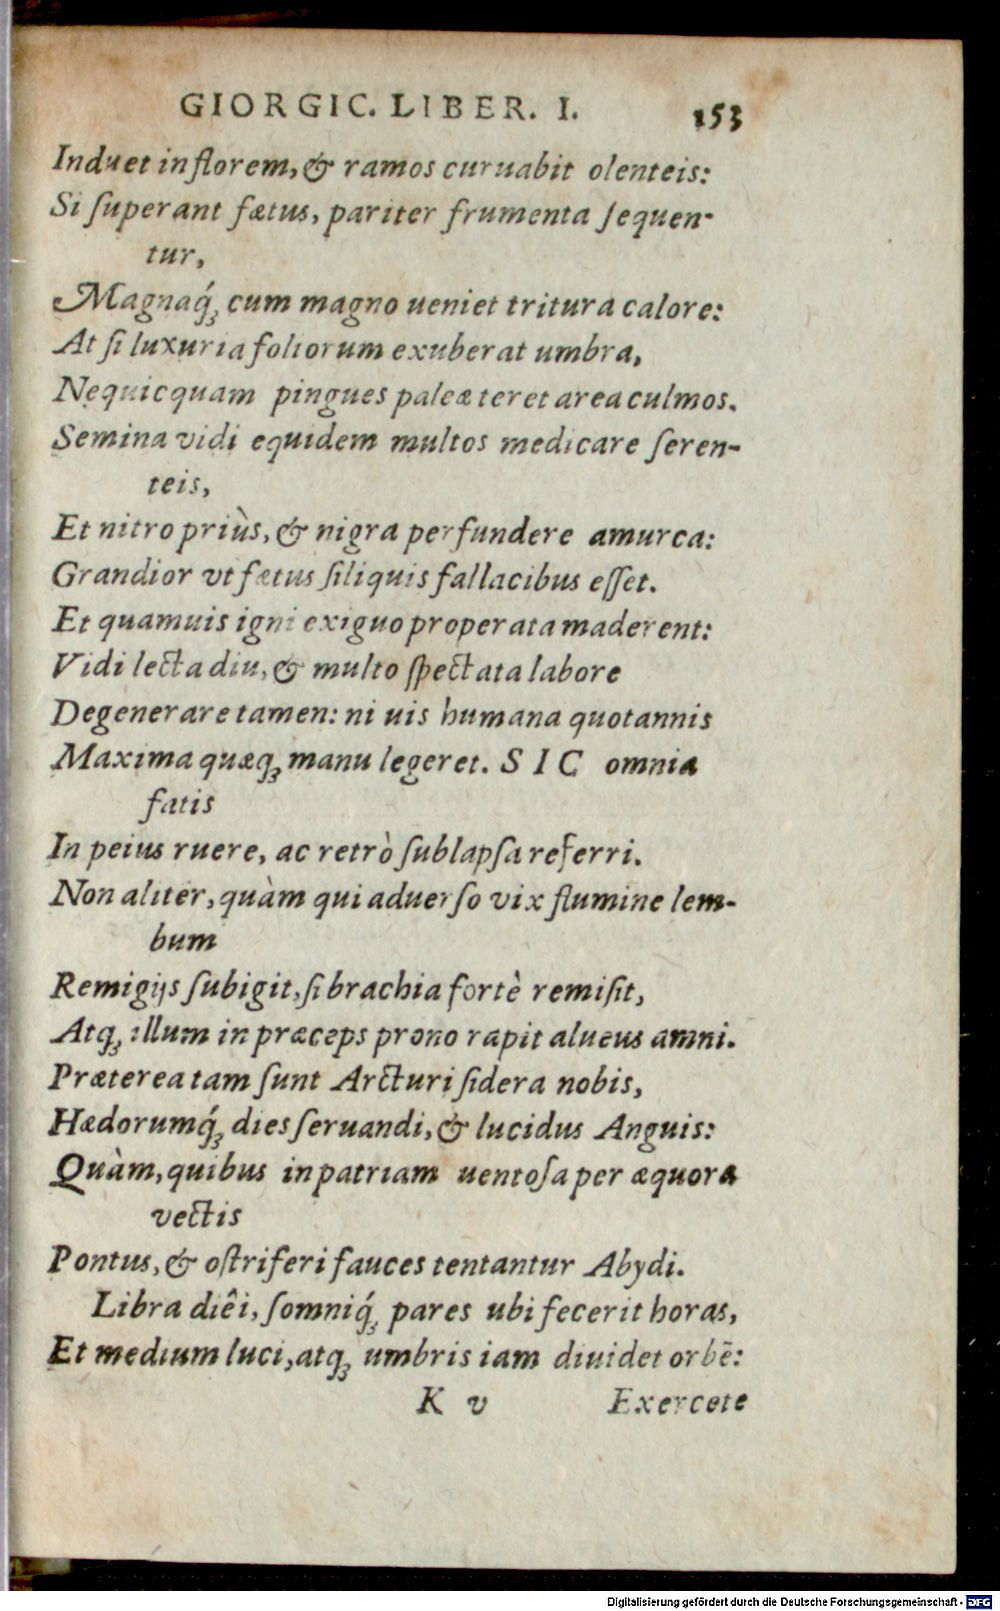 GIORGIC. LIBER. I. 153
Induet in florem, & ramos curuabit olenteis:
Si ſuperant fætus, pariter frumenta ſequen-
tur,
Magnaq́ꝫ cum magno ueniet tritura calore:
At ſi luxuria foliorum exuberat umbra,
Nequicquam pingues paleæ teret area culmos.
Semina vidi equidem multos medicare ſeren-
teis,
Et nitro priùs, & nigra perfundere amurca:
Grandior vt fætus ſiliquis fallacibus eſſet.
Et quamuis igni exiguo properata maderent:
Vidi lecta diu, & multo ſpectata labore
Degenerare tamen: ni uis humana quotannis
Maxima quæqꝫ manu legeret. SIC omnia
fatis
In peius ruere, ac retrò ſublapſa referri.
Non aliter, quàm qui aduerſo vix flumine lem-
bum
Remigijs ſubigit, ſi brachia fortè remiſit,
Atqꝫ illum in præceps prono rapit alueus amni.
Præterea tam ſunt Arcturi ſidera nobis,
Hædorumq́ꝫ dies ſeruandi, & lucidus Anguis:
Quàm, quibus in patriam uentoſa per æquora
vectis
Pontus, & oſtriferi fauces tentantur Abydi.
Libra diêi, ſomniq́ꝫ pares ubi fecerit horas,
Et medium luci, atqꝫ umbris iam diuidet orbẽ:
K v Exercete
Digitalisierung gefördert durch die Deutsche Forschungsgemeinschaft - DFG